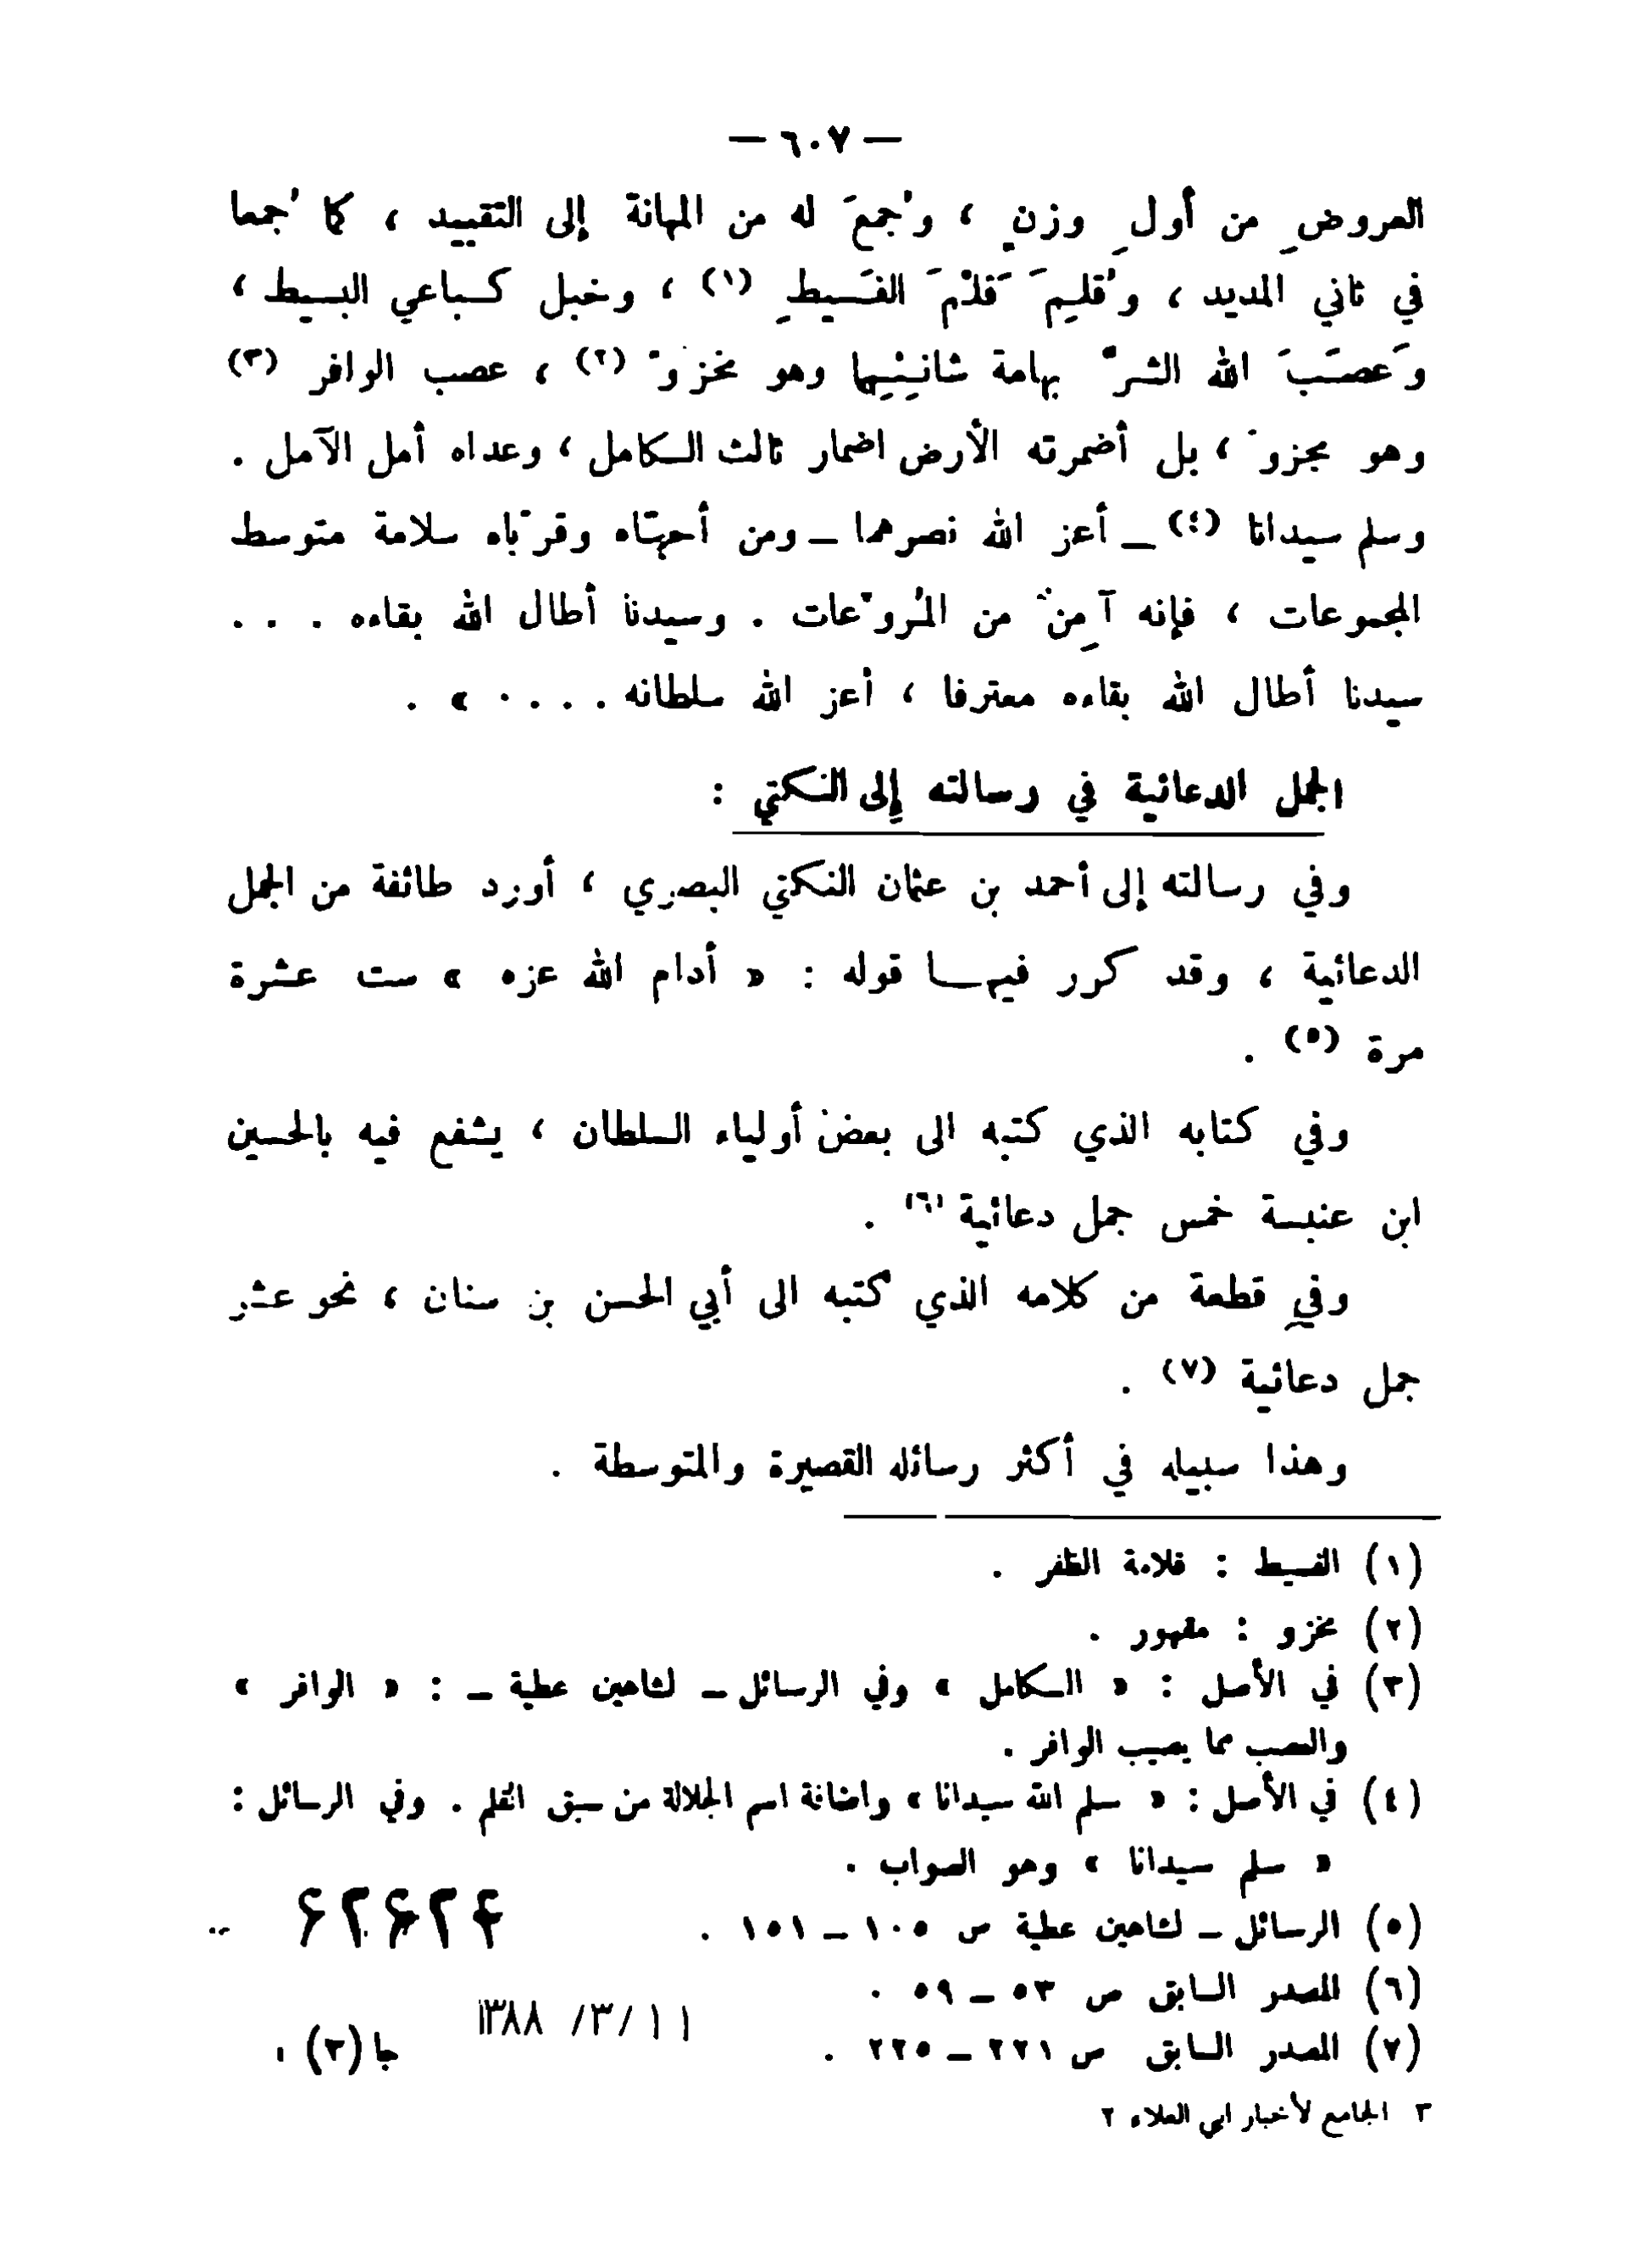 — ٦٠٧ —
العروضِ من أولِ وزنٍ ، وجُمعَ له من المهانة إلى التقييد ، كما جُمعا
في ثاني المديد ، وقُلِمَ قَلْمَ الفَسيطِ (١) ، وخبل كسباعي البسيط ،
وعَصَبَ الله الشرّ بهامة شانِئِيهما وهو مخزوّ (٢) ، عصب الوافر (٣)
وهو مجزوّ ، بل أضمرته الأرض اضمار ثالث الكامل ، وعداه أمل الآمل .
وسلم سيدانا (٤) – أعز الله نصرهما – ومن أحبّاه وقرّباه سلامة متوسط
المجموعات ، فإنه آمِنٌ من المُروّعات . وسيدنا أطال الله بقاءه . . .
سيدنا أطال الله بقاءه معترفا ، أعز الله سلطانه . . . . » .
الجمل الدعائية في رسالته إلى النكتي :
وفي رسالته إلى أحمد بن عثمان النكتي البصري ، أورد طائفة من الجمل
الدعائية ، وقد كرر فيها قوله : « أدام الله عزه » ست عشرة
مرة (٥) .
وفي كتابه الذي كتبه الى بعض أولياء السلطان ، يشفع فيه بالحسين
ابن عنبسة خمس جمل دعائية (٦) .
وفي قطعة من كلامه الذي كتبه الى أبي الحسن بن سنان ، نحو عشر
جمل دعائية (٧) .
وهذا سبيله في أكثر رسائله القصيرة والمتوسطة .
(١) الفسيط : قلامة الظفر .
(٢) مخزو : مقهور .
(٣) في الأصل : « الكامل » وفي الرسائل – لشاهين عطية – : « الوافر »
والعصب مما يصيب الوافر .
(٤) في الأصل : « سلم الله سيدانا » واضافة اسم الجلالة من سبق القلم . وفي الرسائل :
« سلم سيدانا » وهو الصواب .
(٥) الرسائل – لشاهين عطية ص ١٠٥ – ١٥١ .
۶۲۶۲۴
(٦) المصدر السابق ص ٥٣ – ٥٩ .
(٧) المصدر السابق ص ٢٢١ – ٢٢٥ .
١٣٨٨ /٣/ ١١
جا (٣) ،
٣ الجامع لأخبار ابي العلاء ٢